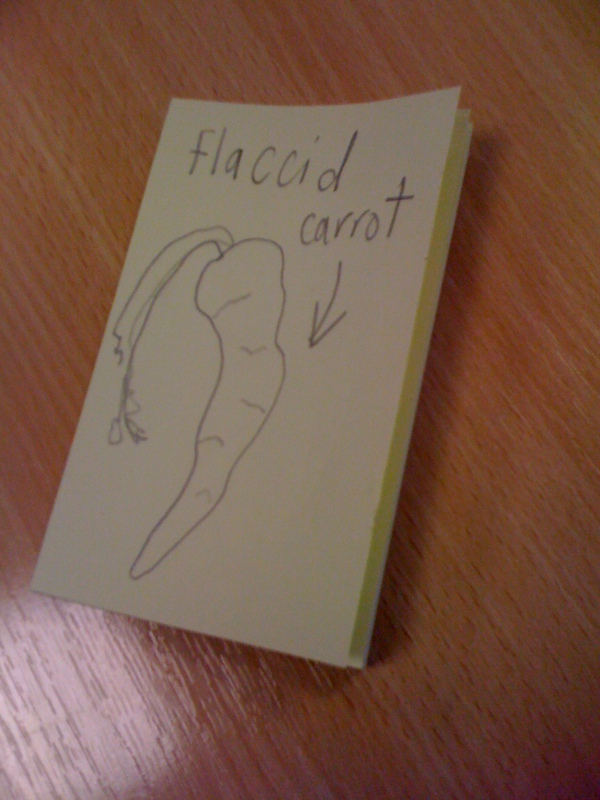 flaccid
carrot